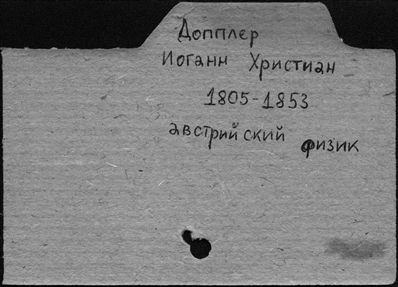 Допплер
Иоганн Христиан
1805-1853
австрийский физик